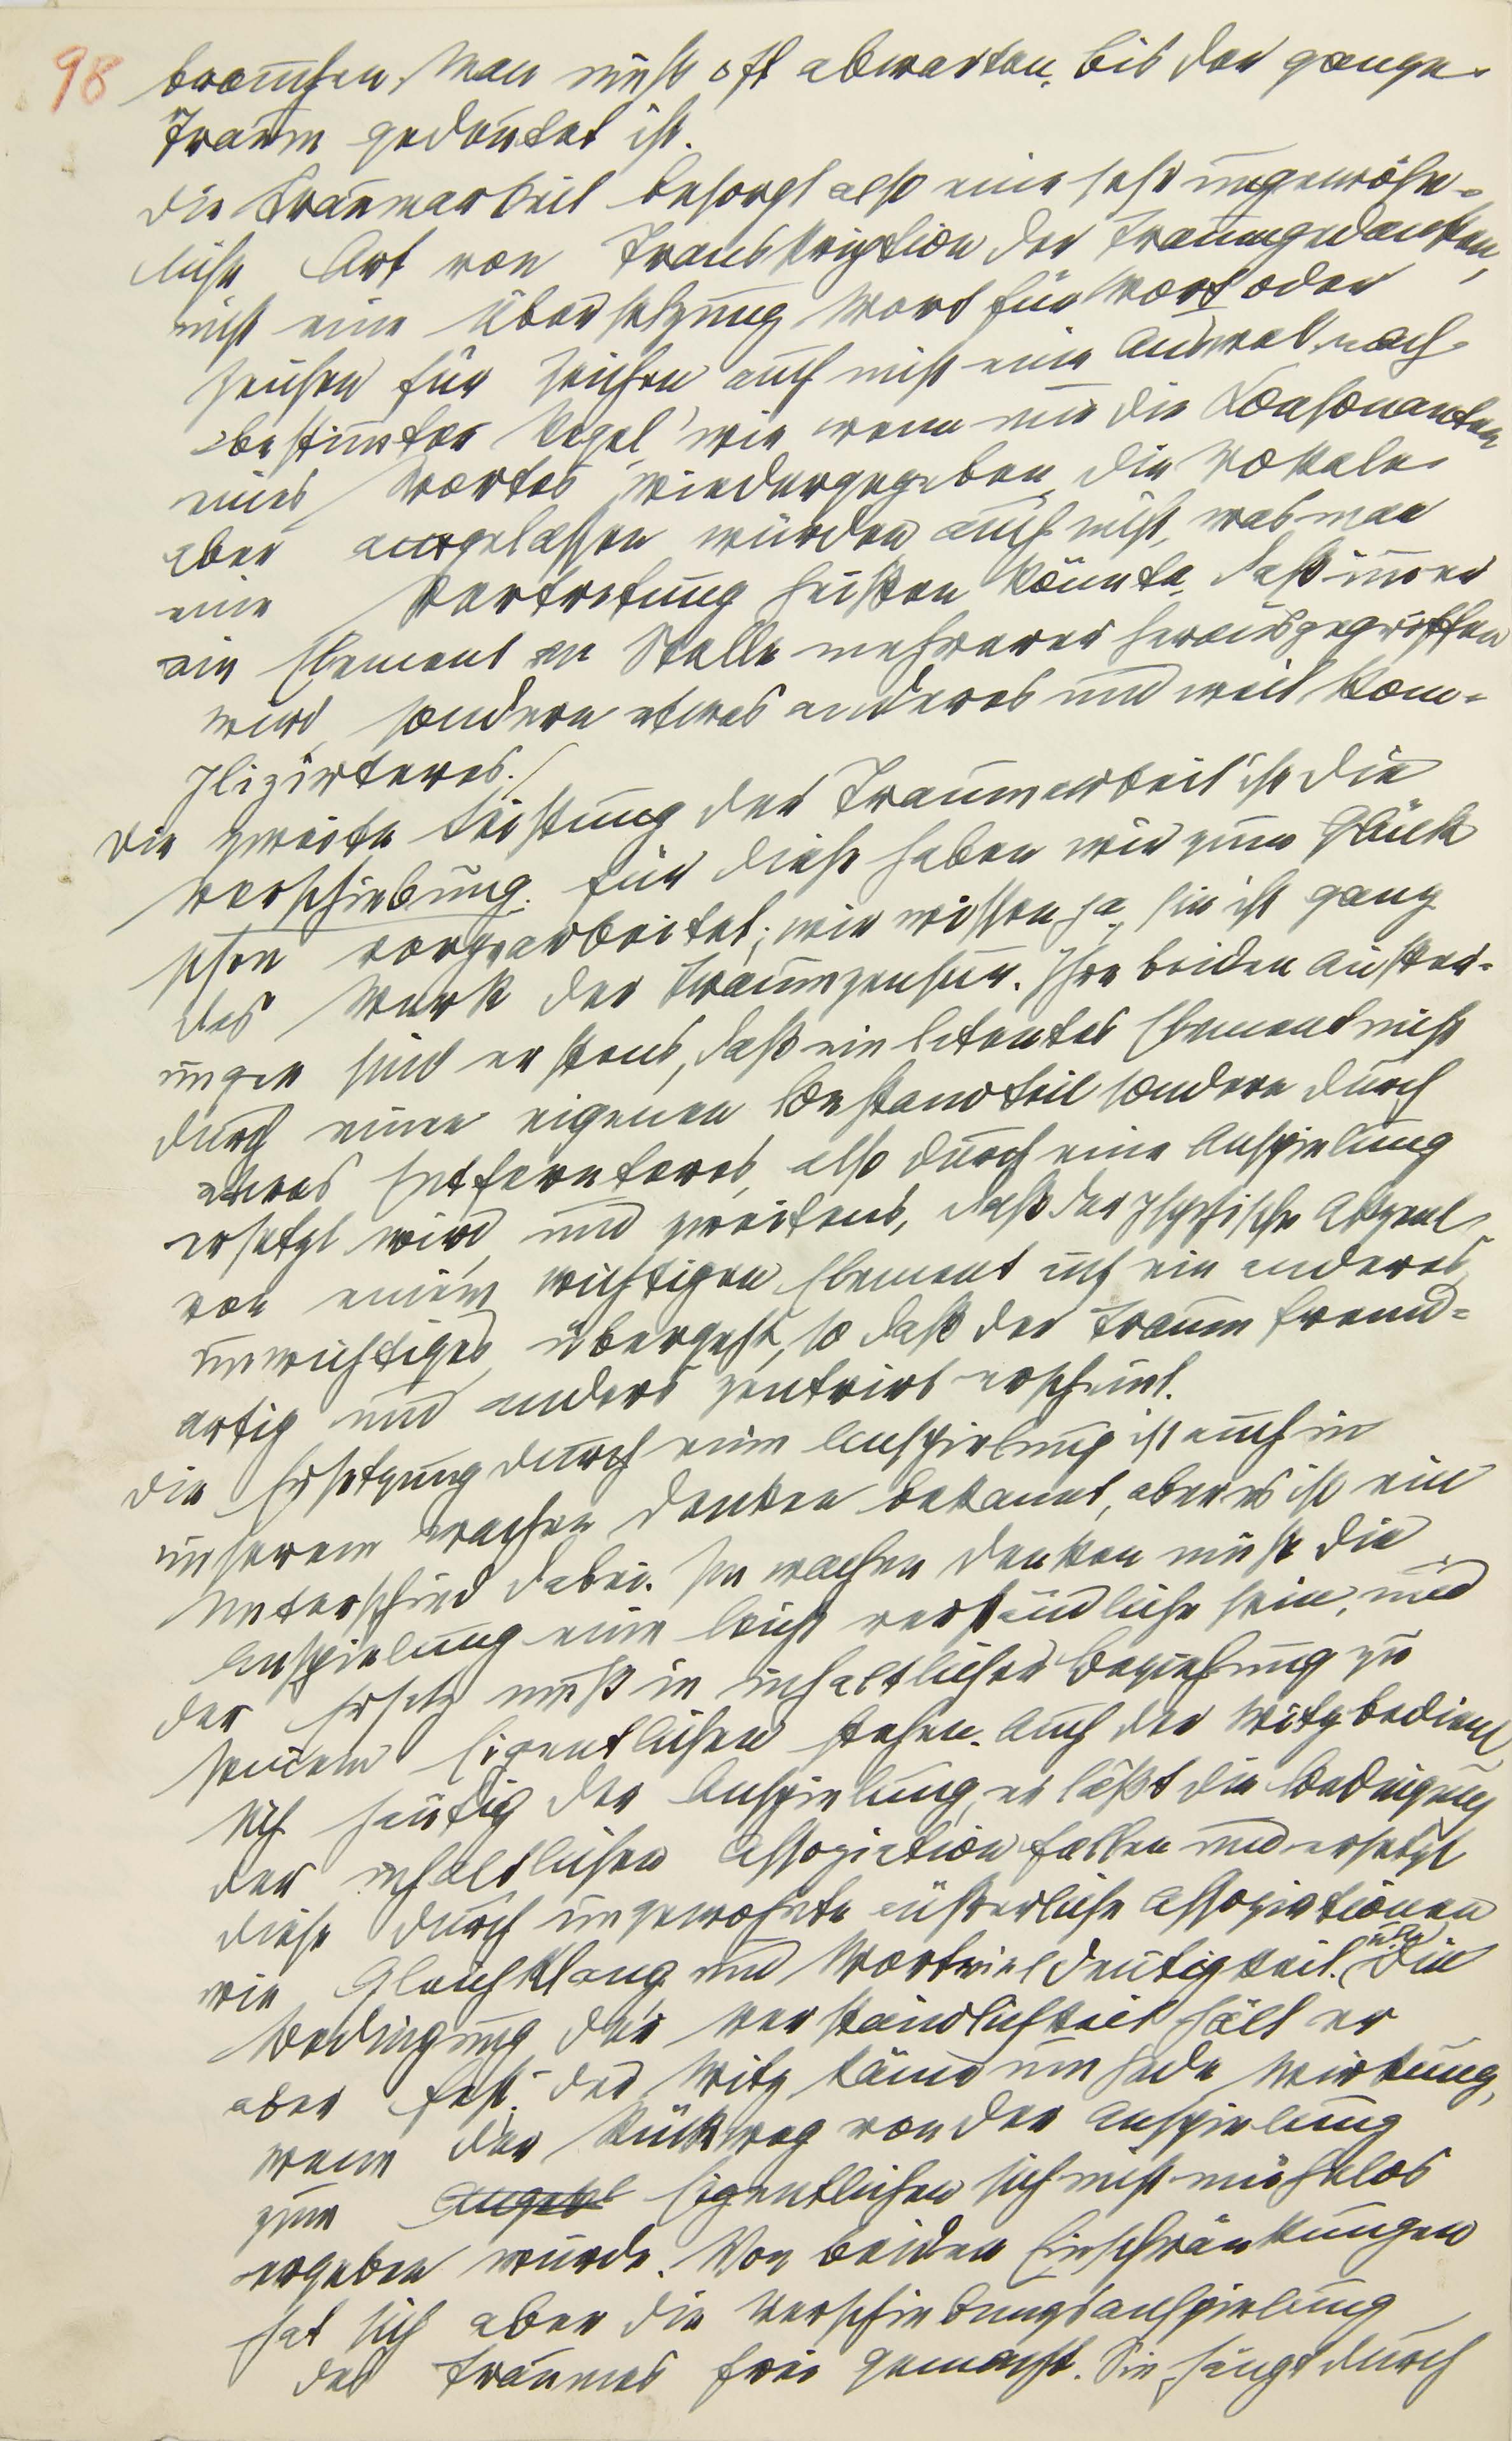 98
brauchen. Man muß oft abwarten, bis der ganze
Traum gedeutet ist.
Die Traumarbeit besorgt also eine sehr ungewöhn-
liche Art von Transkription der Traumgedanken,
nicht eine Übersetzung Wort für Wort oder
Zeichen für Zeichen auch nicht eine Auswal nach
bestimter Regel, wie wenn nur die Konsonanten
eines Wortes wiedergegeben, die Vokale
aber ausgelassen würden auch nicht, was man
eine Vertretung heißen könnte, daß imer
ein Element an Stelle mehrerer herausgegriffen
wird, sondern etwas anderes und weit kom-
plizirteres./
Die zweite Leistung der Traumarbeit ist die
Verschiebung. Für diese haben wir zum Glück
schon vorgearbeitet; wir wissen ja, sie ist ganz
das Werk der Traumzensur. Ihre beiden Äußer-
ungen sind erstens, daß ein latentes Element nicht
durch einen eigenen Bestandteil sondern durch
etwas Entfernteres, also durch eine Anspielung
ersetzt wird, und zweitens, daß der psychische Akzent
von einem wichtigen Element auf ein anderes,
unwichtiges übergeht, so daß der Traum fremd-
artig und anders zentrirt erscheint.
Die Ersetzung durch eine Anspielung ist auch in
unserem wachen Denken bekannt, aber es ist ein
Unterschied dabei. Im wachen Denken muß die
Anspielung eine leicht verständliche sein, und
der Ersatz muß in inhaltlicher Beziehung zu
seinem Eigentlichen stehen. Auch der Witz bedient
sich häufig der Anspielung, er läßt die Bedingung
der inhaltlichen Assoziation fallen und ersetzt
diese durch ungewohnte äußerliche Assoziationen
wie Gleichklang und Wortvieldeutigkeit. Die
Bedingung der Verständlichkeit hält er
aber fest. Der Witz käme um jede Wirkung,
wenn der Rückweg von der Anspielung
zum Eigentlichen sich nicht mühelos
ergeben würde. Von beiden Einschränkungen
hat sich aber die Verschiebungsanspielung
des Traumes frei gemacht. Sie hängt durch